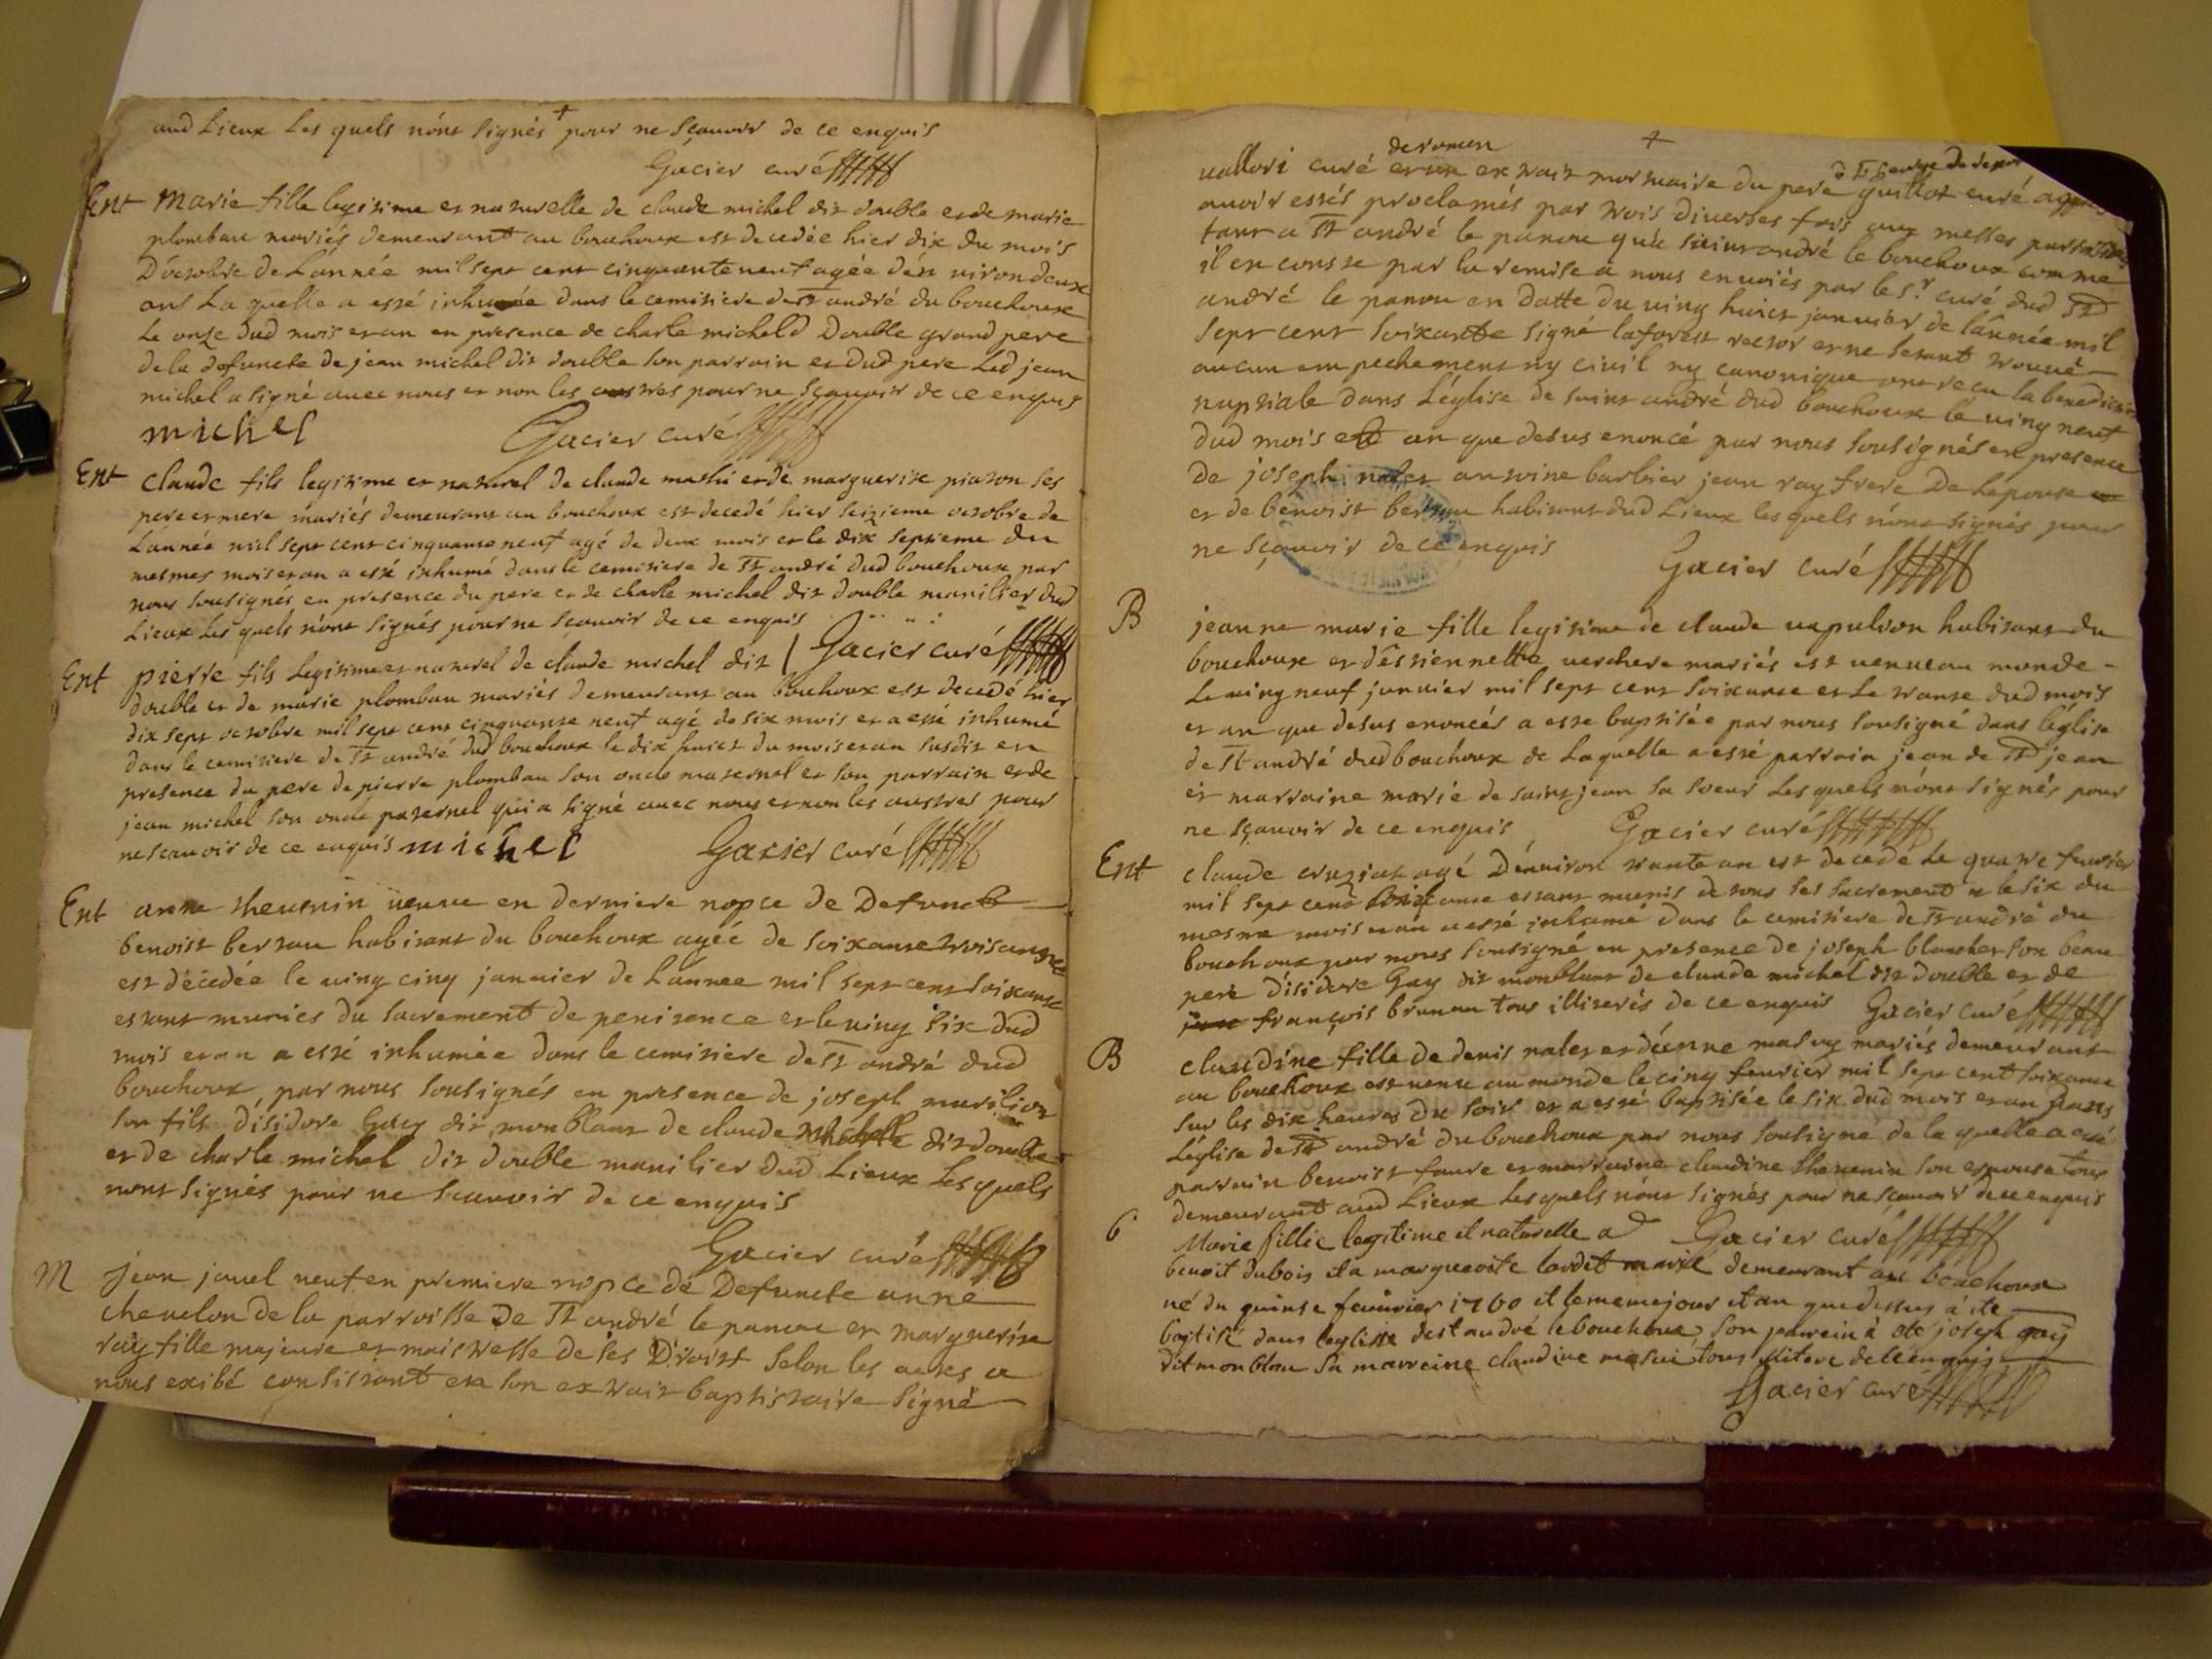 aud Lieux Les quels n'ont signés pour ne sçavoir de ce enquis
Gacier curé
Ent Marie fille legitime et naturelle de claude michel dit double et de marie
plombau mariés demeurant au bouchoux est decedée hier dix du mois
D'octobre de L'année mil sept cent cinquante neuf agée d'en viron deux
ans La quelle a esté inhumée dans le cemitiere de st andré du bouchoux
Le onze dud mois et an en presence de charle michel d Double grand pere
de la defuncte de jean michel dit double son parrain et dud pere Led jean
michel a signé avec nous et non les austres pour ne sçavoir de ce enquis
michel Gacier curé
Ent claude fils legitime et naturel de claude mashi et de marguerite piaton ses
pere et mere mariés demeurant au bouchoux est decedé hier seizieme octobre de
L'année mil sept cent cinquante neuf agé de deux mois et le dix septieme du
mesmes mois et an a esté inhumé dans le cemitiere de st andré dud bouchoux par
nous sousignés en presence du pere et de charle michel dit double manilier dud
Lieux Les quels n'ont signés pour ne sçavoir de ce enquis
Gacier curé
Ent pierre fils legitime et naturel de claude michel dit
double et de marie plombau mariés demeurant au bouchoux est decedé hier
dix sept octobre mil sept cent cinquante neuf agé de six mois et a esté inhumé
dans le cemitiere de st andré dud bouchoux le dix huict du mois et an susdit en
presence du pere de pierre plombau son oncle maternel et son parrain et de
jean michel son oncle paternel qui a signé avec nous et non les austres pour
ne scavoir de ce enquis michel Gacier curé
Ent anne thevenin veuve en derniere nopce de Defunct
benoist bertau habitant du bouchoux agéé de soixante trois
est décédée le ving cinq janvier de L'annee mil sept cent soixante
estant munies du sacrement de penitence et le ving six dud
mois et an a esté inhumée dans le cemitiere de st andré dud
bouchoux par nous sousignés en presence de joseph marilion
son fils d'isidore Guy dit monblant de claude michelle dit double
et de charle michel dit double manilier dud Lieux Les quels
n'ont signés pour ne scavoir de ce enquis
Gacier curé
M jean jouel veuf en premiere nopce de Defuncte anne
chevelon de la parroisse de st andré le panou et marguerite
ray fille majeure et maistresse de ses Droist selon les actes a
nous exibé consistant en son extrait baptistaire signé
vallori curé de romen extrait mortuaire du pere guillot curé
avoir estés proclamés par trois diverses fois aux messes
tant a st andré le panou qu'a saint andré le bouchoux comme
il en conste par la remise a nous envoiés par le sr curé dud st
andré le panou en datte du ving huict janvier de l'année mil
sept cent soixante signé laforest rector et ne s'etant trouvé
aucun empechement ny civil ny canonique ont recu la benediction
nuptiale dans L'église de saint andré dud bouchoux le ving neuf
dud mois et an que desus enoncé par nous sousignés en presence
de joseph nalet antoine barbier jean ray frere de Lepouse
et de benoist bertau habitant dud Lieux les quels n'ont signés pour
ne sçavoir de ce enquis
Gacier curé
B jeanne marie fille legitime de claude vapulson habitant du
bouchoux et d'éstiennette verchere mariés est venue au monde
Le ving neuf janvier mil sept cent soixante et Le trante dud mois
et an que desus enoncés a este baptisée par nous sousigné dans l'église
de st andré dud bouchoux de Laquelle a esté parrain jean de st jean
et marraine marie de saint jean sa soeur Les quels n'ont signés pour
ne sçavoir de ce enquis Gacier curé
Ent claude cruziat agé D'énviron trante an est decedé Le quatre fevrier
mil sept cent soixante estant munis de tous ses sacrement et le six du
mesme mois et an a esté inhumé dans le cemitiere de st andré du
bouchoux par nous sousigné en presence de joseph blanchet son beau
pere d'isidore Guy dit monblant de claude michel dit double et de
françois brunau tous illiterés de ce enquis Gacier curé
B claudine fille de denis nalet et d'éanne masuy mariés demeurant
au bouchoux est venu au monde le cinq fevrier mil sept cent soixante
sur les dix heures du soir et a esté baptisée le six dud mois et an dans
L'église de st andré du bouchoux par nous sousigné de la quelle a esté
parrain benoist faure et marraine claudine thevenin son espouse tous
demeurant aud Lieux Les quels n'ont signés pour ne sçavoir de ce enquis
Gacier curé
6 Marie fillie legitime et naturelle a
benoit dubois et a margueoite tardit marie demeurant au bouchoux
né du quinse feuvrier 1760 et le meme jour et an que dessus à ete
baptisé dans leglisse de st andré le bouchoux son parrein à ete joseph gay
dit monblan sa marreine claudine masui tous illitere de ce enquis
Gacier curé